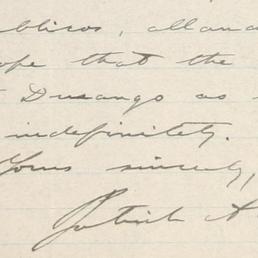 ublicos, alland
ope that the
Durango as
indefinitely.
Yours sincerely,
Patrick A